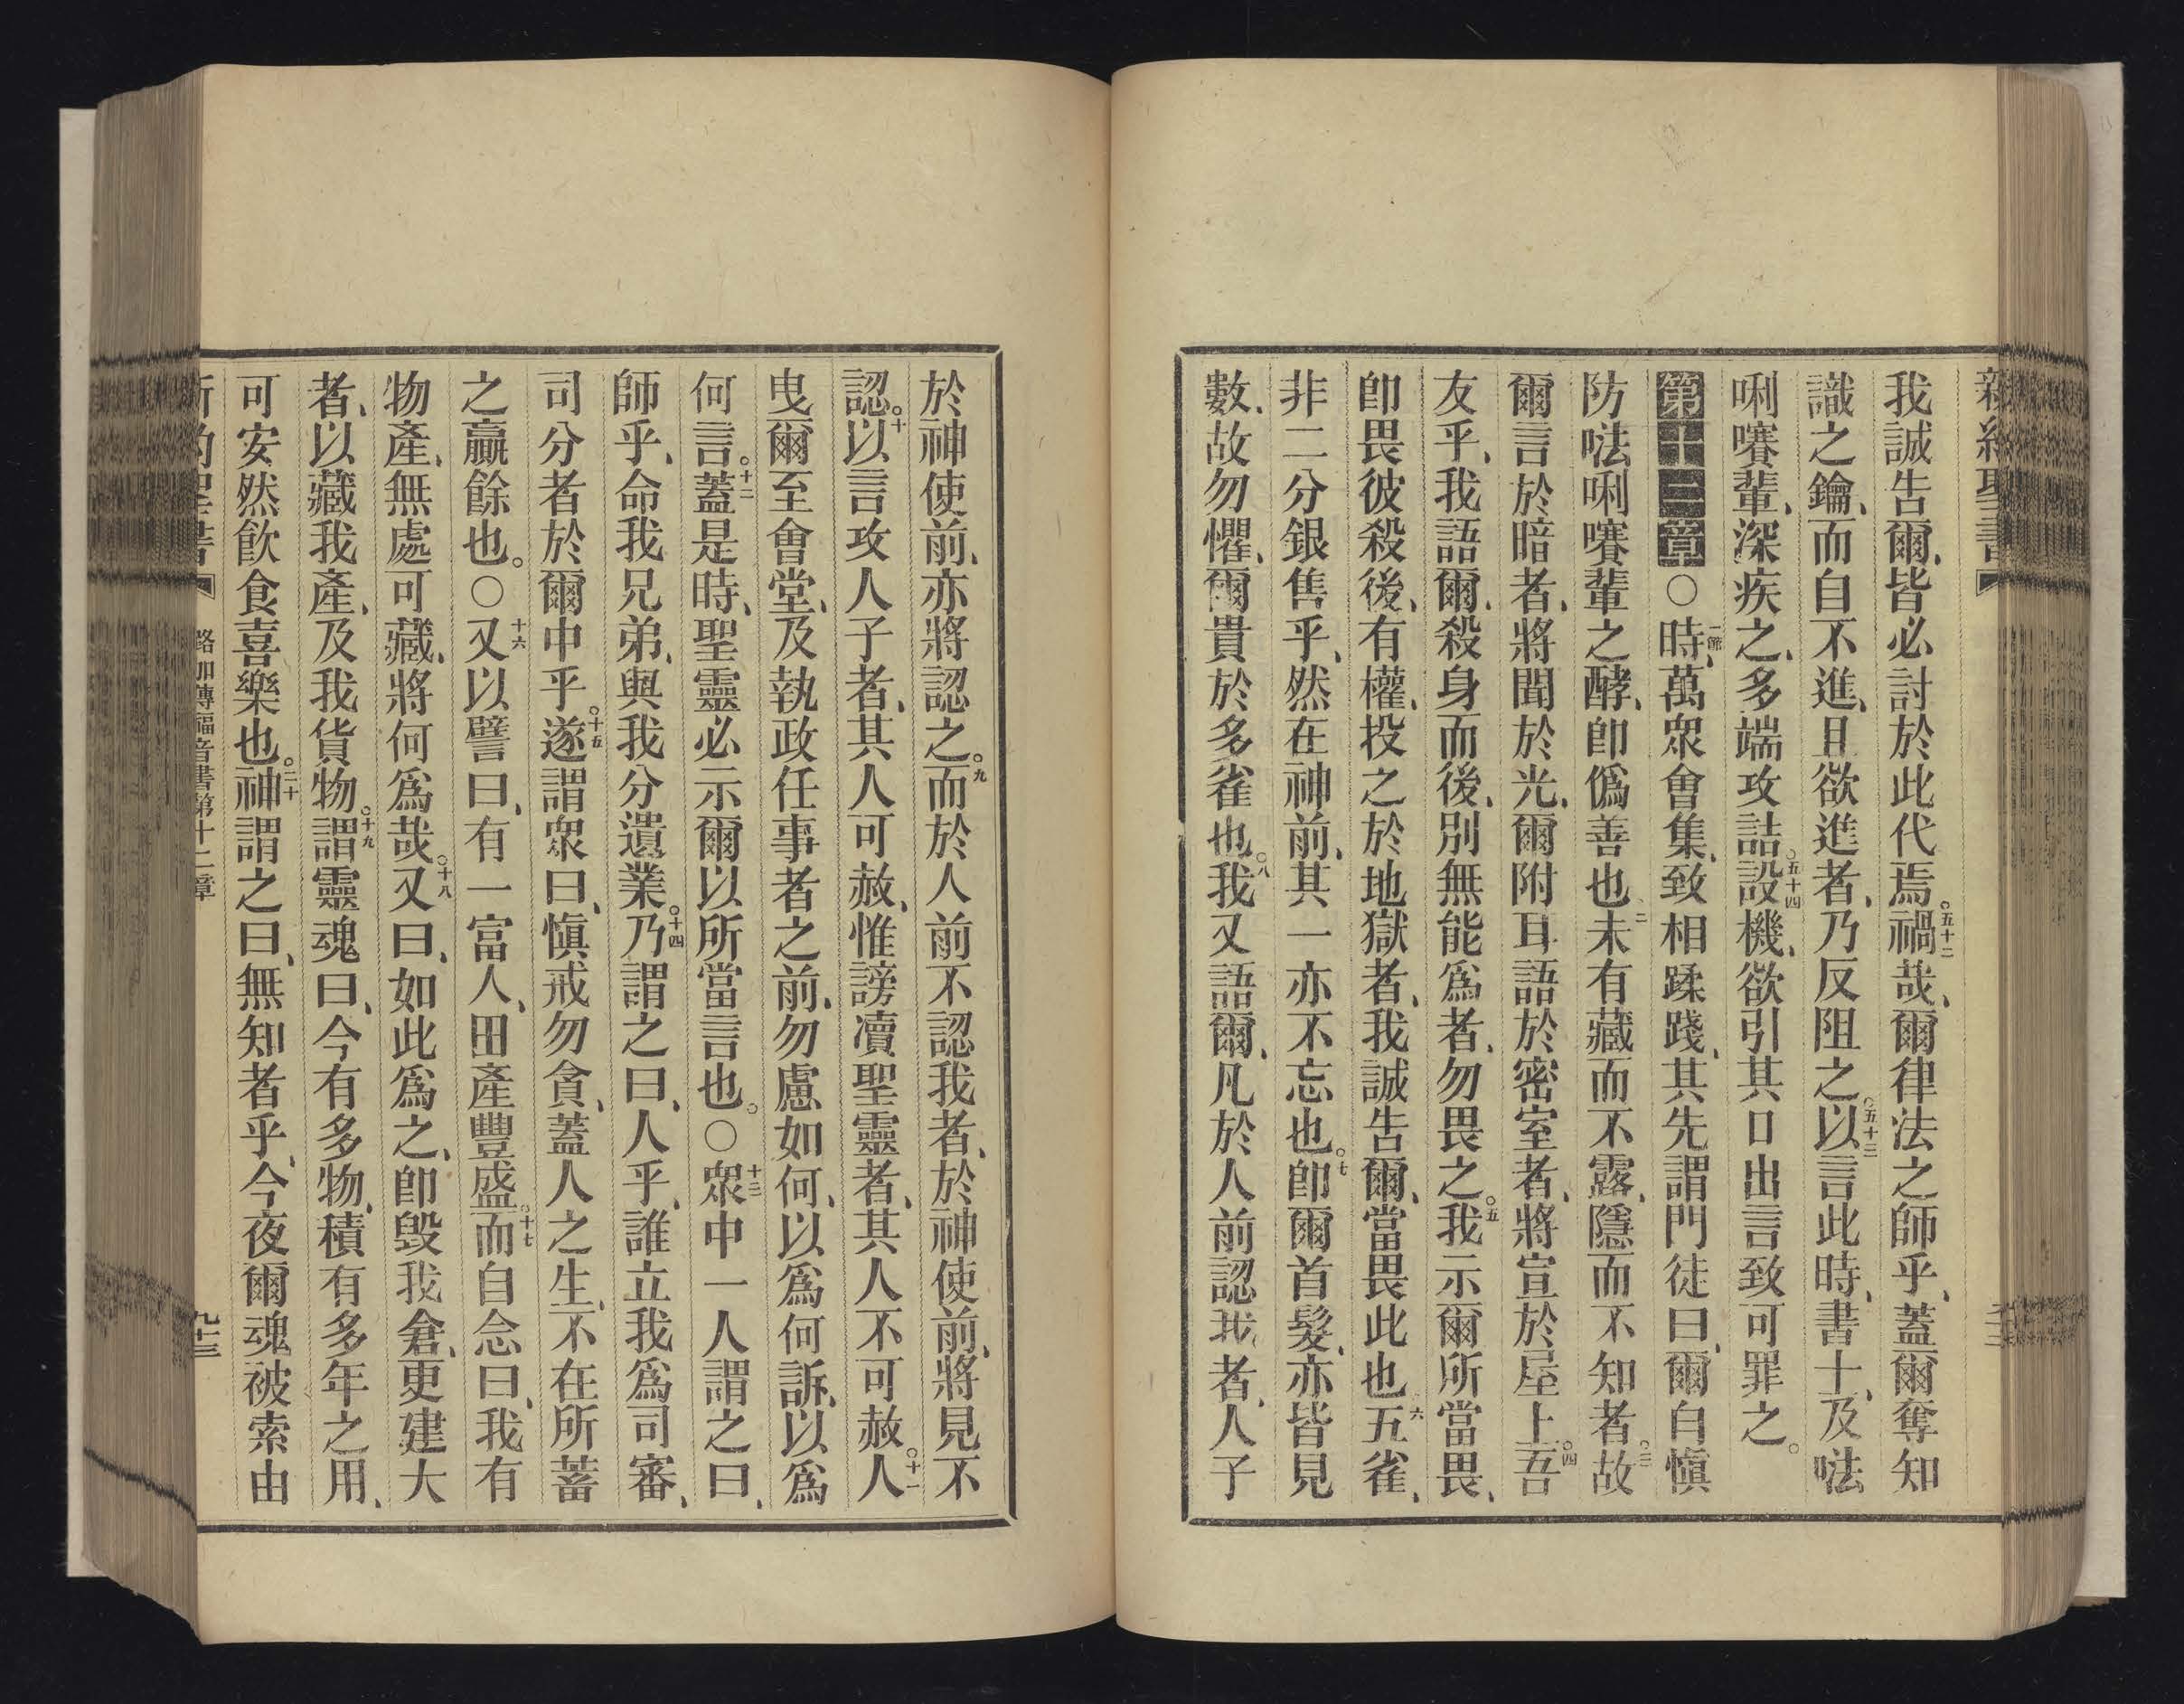 我誠告爾、皆必討於此代焉。五十二禍哉、爾律法之師乎、蓋爾奪知
識之鑰、而自不進、且欲進者、乃反阻之。五十三以言此時、書士、及㗁
唎㘔輩、深疾之、多端攻詰。五十四設機、欲引其口出言致可罪之。
第十二章○一節時、萬眾會集、致相蹂踐、其先謂門徒曰、爾自愼
防㗁唎㘔輩之酵、卽僞善也二未有藏而不露、隱而不知者。三故
爾言於暗者、將聞於光、爾附耳語於密室者、將宣於屋上。四吾
友乎、我語爾、殺身而後、別無能爲者、勿畏之。五我示爾所當畏、
卽畏彼殺後、有權、投之於地獄者、我誠告爾、當畏此也六五雀、
非二分銀售乎、然在神前、其一亦不忘也。七卽爾首髮、亦皆見
數、故勿懼、爾貴於多雀也。八我又語爾、凡於人前認我者、人子
於神使前、亦將認之。九而於人前不認我者、於神使前、將見不
認。十以言攻人子者、其人可赦、惟謗凟聖靈者、其人不可赦。十一人
曳爾至會堂、及執政任事者之前、勿慮如何、以爲何訴、以爲
何言。十二蓋是時、聖靈必示爾以所當言也。○十三眾中一人謂之曰、
師乎、命我兄弟、與我分遺業。十四乃謂之曰、人乎、誰立我爲司審、
司分者於爾中乎。十五遂謂眾曰、愼戒勿貪、蓋人之生、不在所蓄
之贏餘也。○十六又以譬曰、有一富人、田產豐盛。十七而自念曰、我有
物產、無處可藏、將何爲哉。十八又曰、如此爲之、卽毀我倉、更建大
者、以藏我產、及我貨物。十九謂靈魂曰、今有多物、積有多年之用、
可安然飮食喜樂也。二十神謂之曰、無知者乎、今夜爾魂被索由
路加傳福音書第十二章
九十三